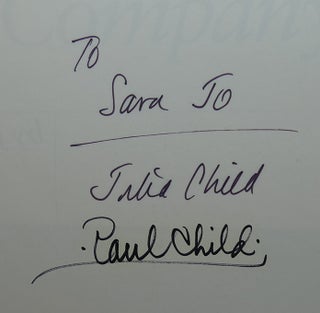 Company
To
Sara Jo
Julia Child
Paul Child